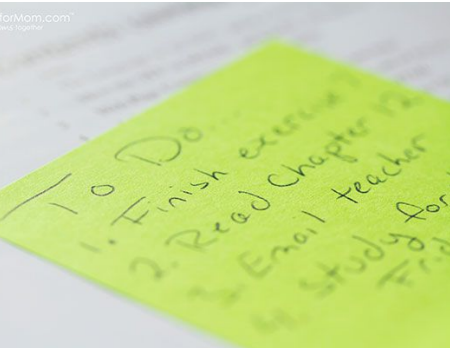 forMom.com™
To Do...
1. Finish exercise
2. Read Chapter 12
3. Email teacher
4. Study for
Frid